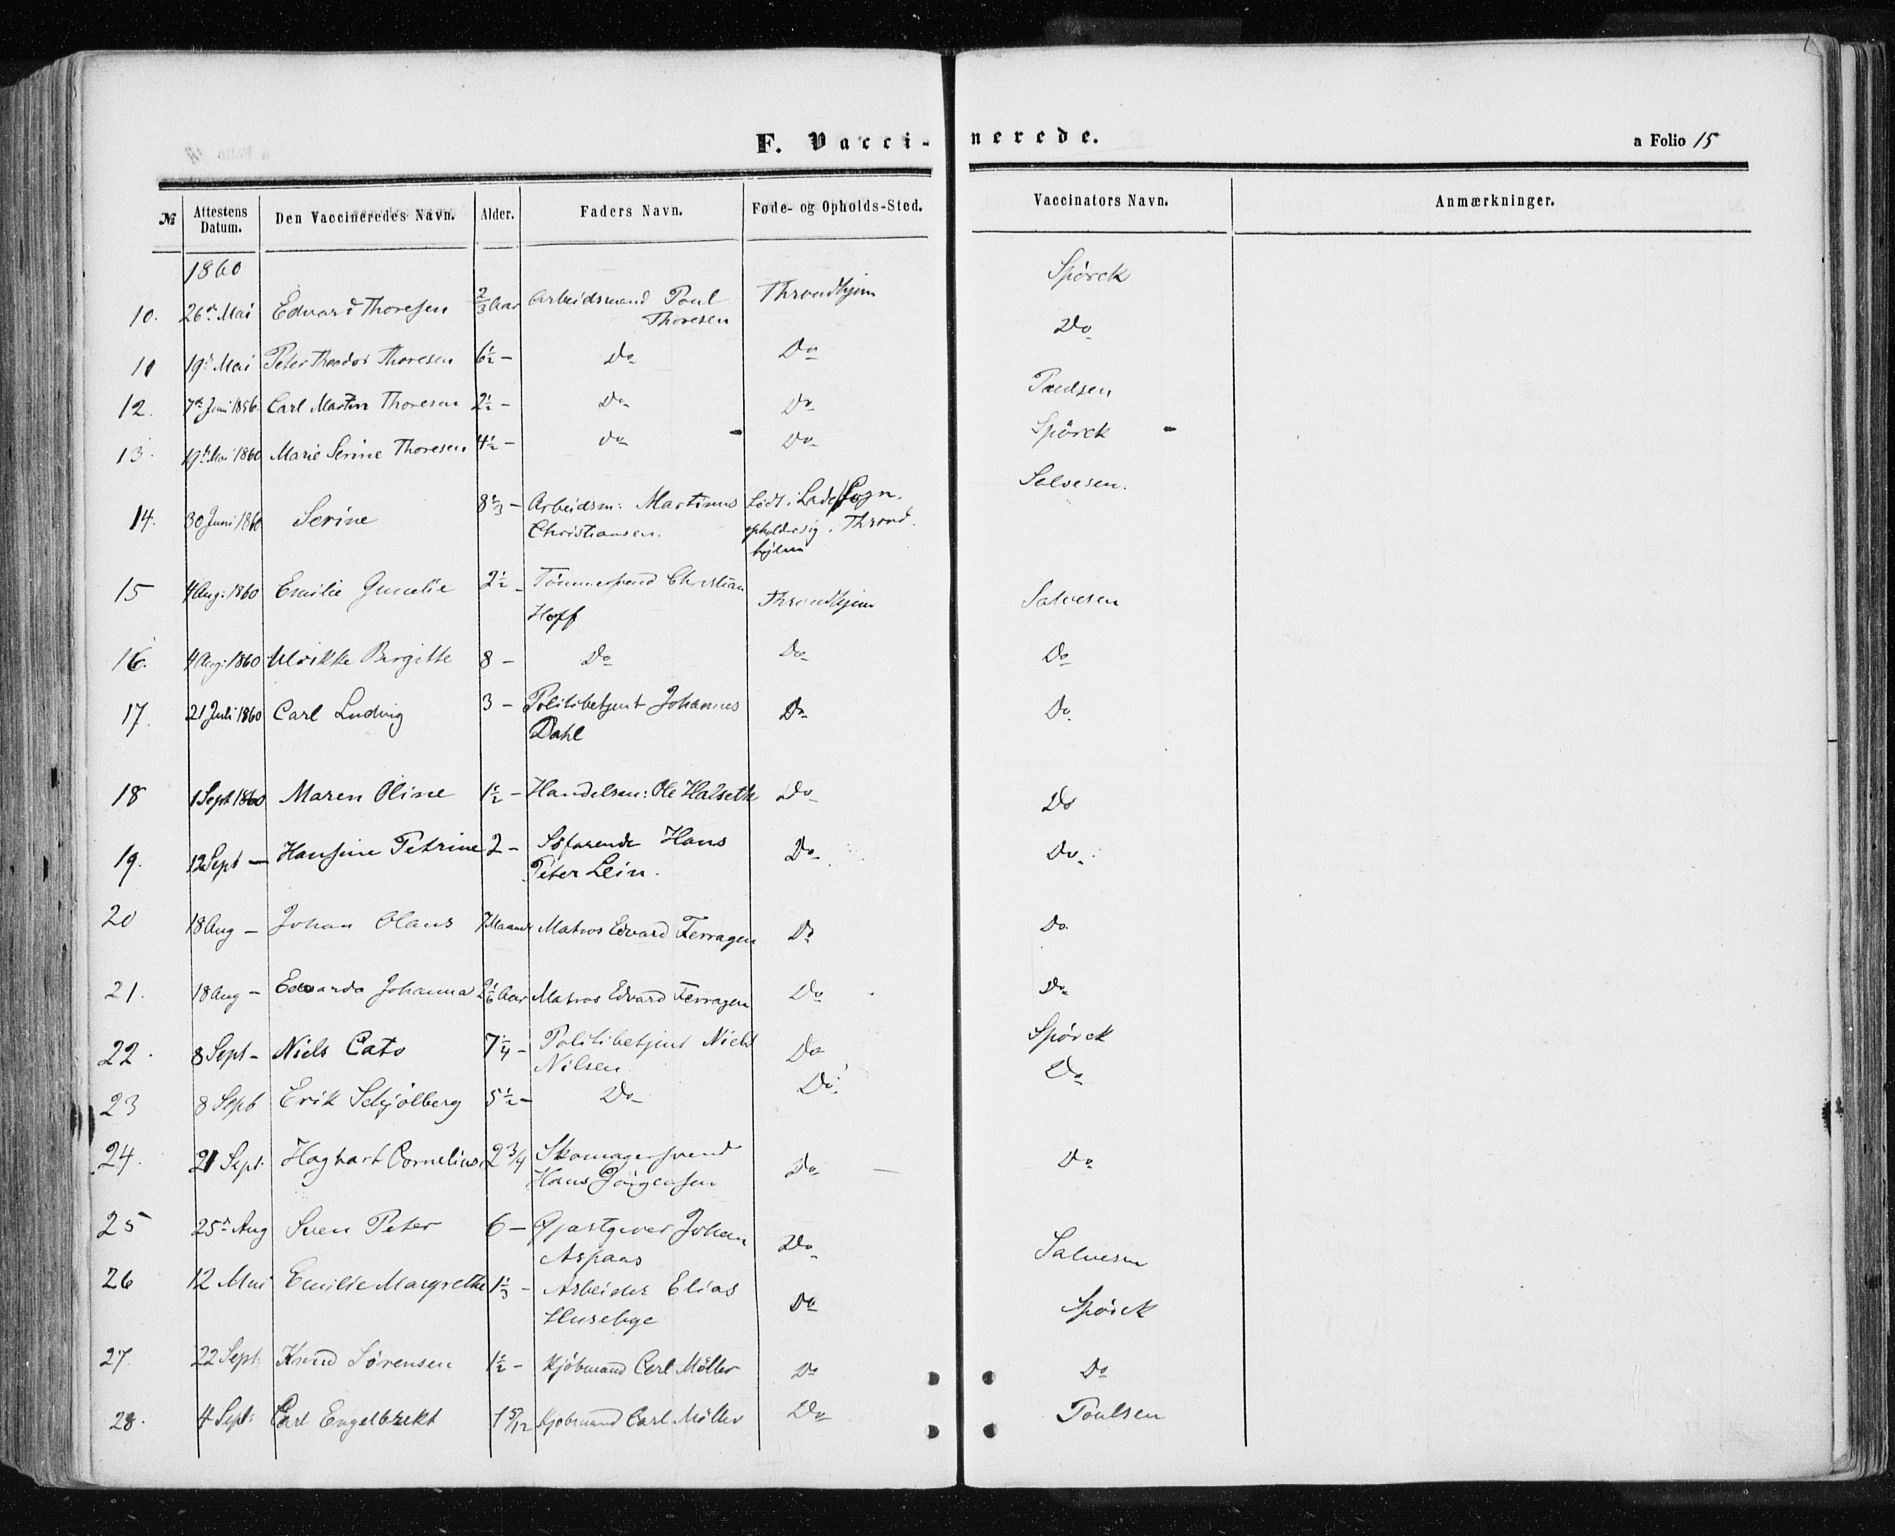 F. Vacci- nerede.
a Folio 15
№ Attestens Datum. Den Vaccineredes Navn. Alder. Faders Navn. Føde- og Opholds-Sted. Vaccinators Navn. Anmærkninger.
1860
10. 26de Mai Edvard Thoresen 2/3 Aar Arbeidsmand Poul Throndhjem Spörck
Thoresen
11 19de Mai Peter Theodor Thoresen 6 1/2 - Do Do Do
12. 7de Juni 1856 Carl Martin Thoresen 2 1/2 - Do Do Paulsen
13. 19de Mai 1860 Marie Serine Thoresen 4 1/2 - do Do Spörck
14. 30 Juni 1860 Serine 8 1/3 - Arbeidsm: Martinus født i Lade Sogn. Salvesen.
Christiansen. opholder sig i Thrond-
hjem
15 4 Aug: 1860 Emilie Gunelie 2 1/2 - Tømmersvend Christian Throndhjem Salvesen
Hoff
16. 4 Aug: 1860 Ulrikke Birgitte 8 - Do Do Do
17. 21 Juli 1860 Carl Ludvig 3 - Politibetjent Johannes Do Do
Dahl
18 1 Sept 1860 Maren Oline 1 1/2 - Handelsm: Ole Halseth Do Do
19. 12 Sept - Hansine Petrine 2 - Söfarende Hans Do Do
Peter Lein.
20 18 Aug - Johan Olaus 7 Maaned Matros Edvard Ferragen Do Do
21. 18 Aug - Edvarda Johanna 2 1/6 Aar Matros Edvard Ferragen Do Do
22. 8 Sept - Niels Cato 7 1/4 - Politibetjent Niels Do Spörck
Nilsen
23 8 Sept Erik Schjølberg 5 1/2 - Do Do Do
24. 21 Sept: Hagbart Cornelius 2 3/4 Skomagersvend Do Do
Hans Jörgensen
25 25de Aug Sven Peter 6 - Gjæstgiver Johan Do Salvesen
Aspaas
26 12 Mai Emilie Margrethe 1 1/3 - Arbeider Elias Do Spörck
Husebye
27. 22 Sept: Knud Sørensen 1 1/2 - Kjøbmand Carl Møller Do Do
28. 4 Sept: Carl Engelbrekt 1 5/12 Kjøbmand Carl Møller Do Poulsen